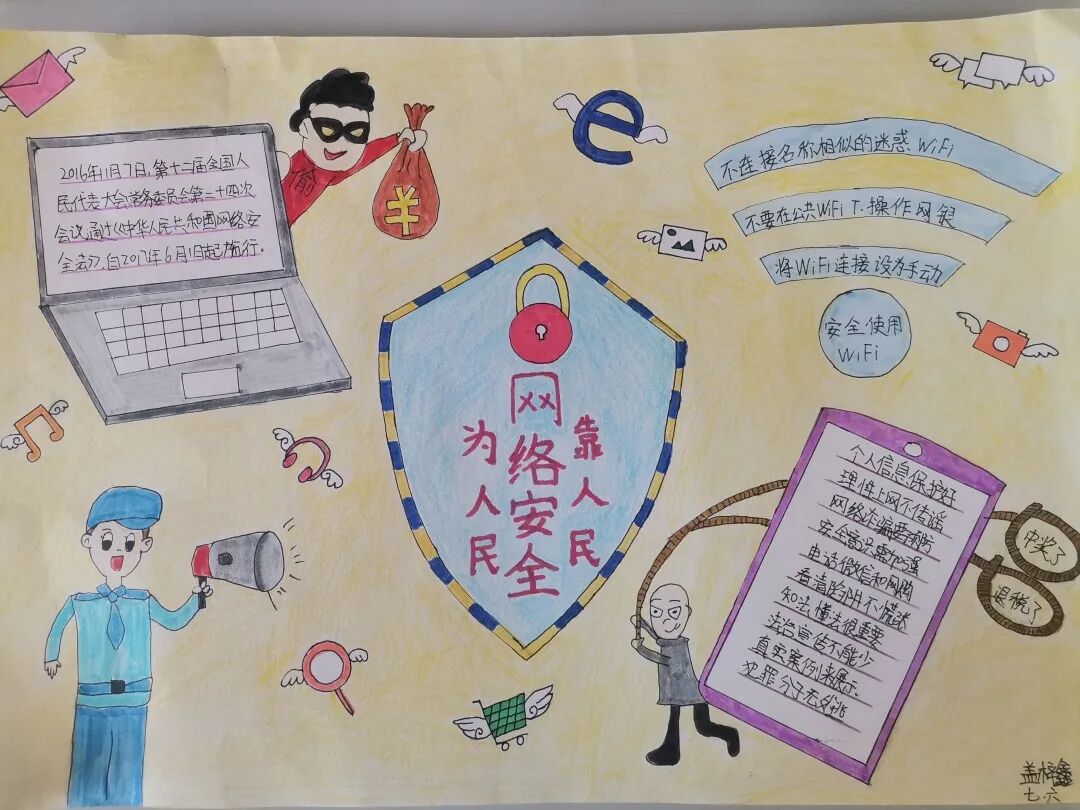 2016年11月7日，第十二届全国人
民代表大会常务委员会第二十四次
会议通过《中华人民共和国网络安
全法》，自2017年6月1日起施行。
偷
¥
e
不连接名称相似的迷惑 WiFi
不要在公共WiFi下操作网银
将WiFi连接设为手动
安全使用
WiFi
网络安全
为人民
靠人民
个人信息保护好
理性上网不传谣
网络诈骗要预防
安全意识需加强
电话微信和网购
看清陷阱不慌张
知法懂法很重要
法治宣传不能少
真实案例来展示.
犯罪分子无处逃
中奖了
退税了
七.六